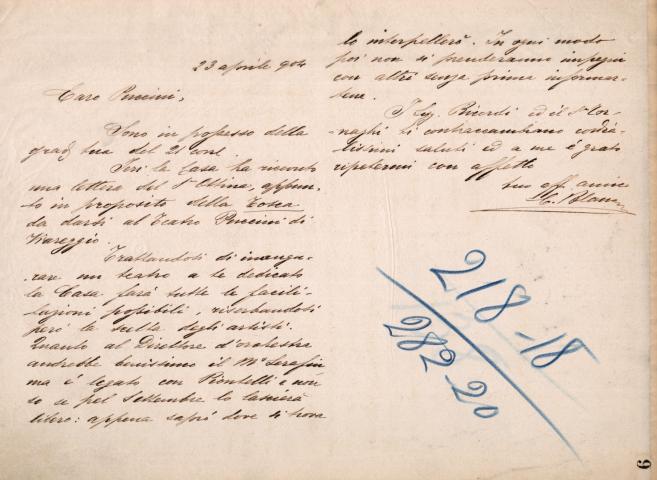 23 aprile 904
Caro Puccini,
Sono in possesso della
grad. tua del 21 corr.
Ieri la Casa ha ricevuto
una lettera del Sr. appun-
to in proposito della Tosca
da darsi al Teatro Puccini di
Viareggio.
Trattandosi di inaugu-
rare un teatro a te dedicato
la Casa farà tutte le facili-
tazioni possibili, riserbandosi
però la scelta degli artisti.
Quanto al Direttore d'orchestra
andrebbe benissimo il Mo. Serafin
ma è legato con e non
so se pel Settembre lo lascierà
libero: appena saprò dove si trova
lo interpellerò. In ogni modo
poi non si prenderanno impegni
con altri senza prima informar-
tene.
Il Sig. Ricordi ed il Sr. Tor-
naghi ti contraccambiano cordia-
lissimi saluti ed a me è grato
ripetermi con affetto
tuo aff. amico
C. Blanc
218-18
282-20
6